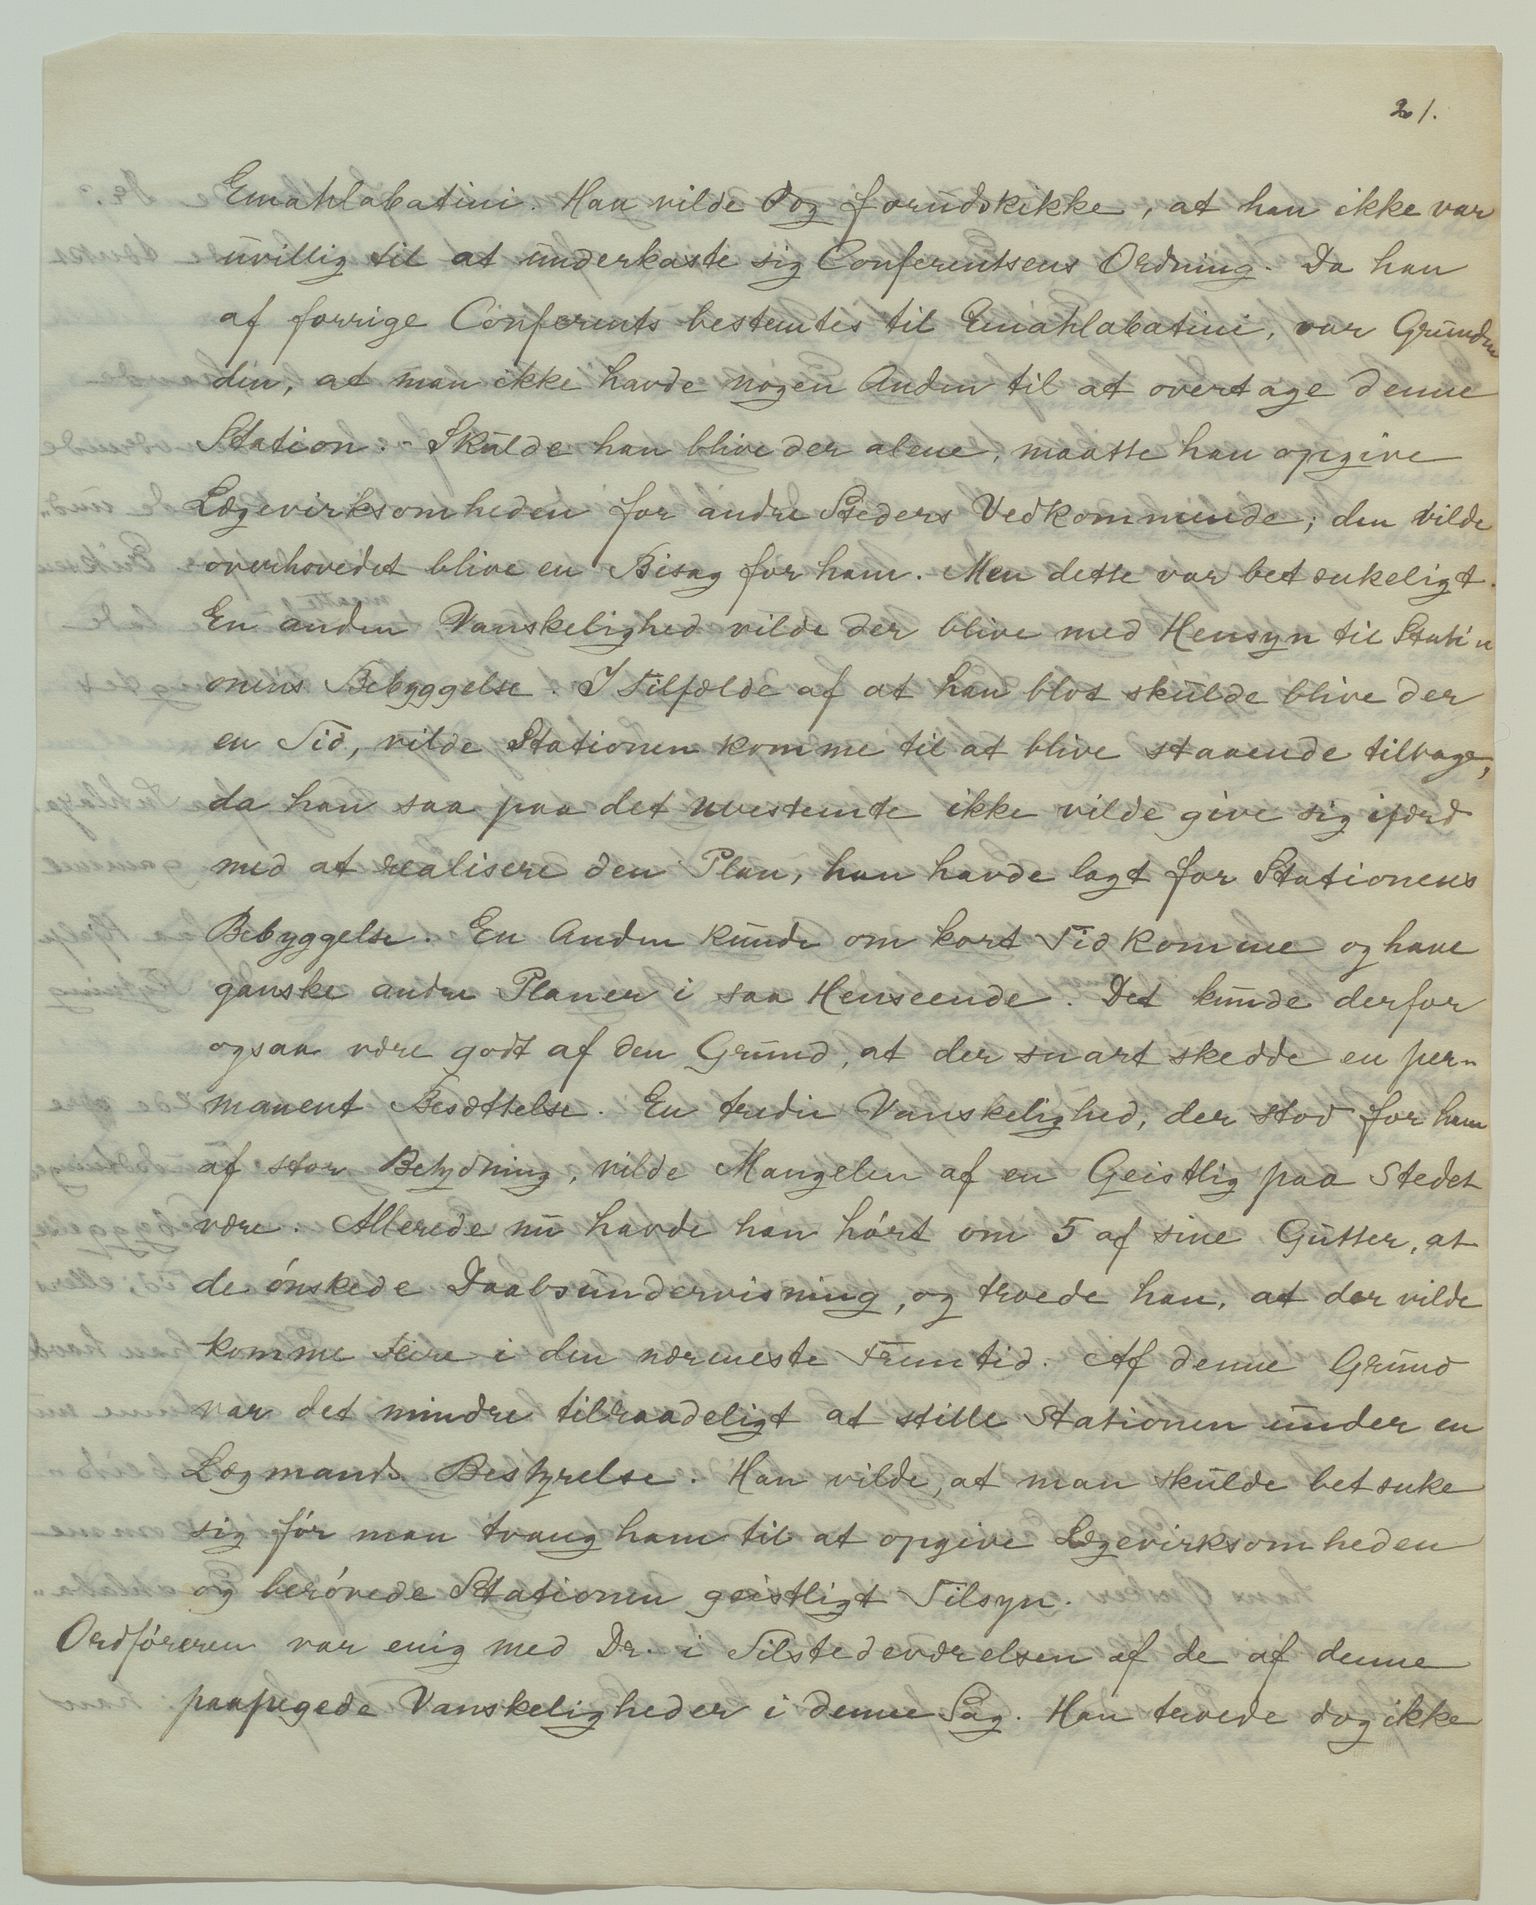 21.
Emahlabatini. Han vilde dog forudskikke, at han ikke var
uvillig til at underkaste sig Conferentsens Ordning. Da han
af forrige Conferents bestemtes til Emahlabatini, var Grunden
den, at man ikke havde nogen Anden til at overtage denne
Station. - Skulde han blive der alene, maatte han opgive
Lægevirksomheden for andre Steders Vedkommende; den vilde
overhovedet blive en Bisag for ham. Men dette var betænkeligt.
En anden Vanskelighed vilde der blive med Hensyn til Stati-
onens Bebyggelse. I Tilfælde af at han blot skulde blive der
en Tid, vilde Stationen komme til at blive staaende tilbage,
da han saa paa det uvestemte ikke vilde give sig ifærd
med at realisere den Plan, han havde lagt for Stationens
Bebyggelse. En Anden kunde om kort Tid komme og have
ganske andre Planer i saa Henseende. Det kunde derfor
ogsaa være godt af den Grund, at der snart skedde en per-
manent Besættelse. En tredie Vanskelighed, der stod for ham
af stor Betydning, vilde Mangelen af en Geistlig paa Stedet
være. Allerede nu havde han hórt om 5 af sine Gutter, at
de ónskede Daabsundervisning, og troede han, at der vilde
komme flere i den nærmeste Fremtid. Af denne Grund
var det mindre tilraadeligt at stille Stationen under en
Lægmands Bestyrelse. Han vilde, at man skulde betænke
sig fór man tvang ham til at opgive Lægevirksomheden
og beróvede Stationen geistligt Tilsyn.
Ordfóreren var enig med Dr. i Tilstedeværelsen af de af denne
paapegede Vanskeligheder i denne Sag. Han troede dog ikke